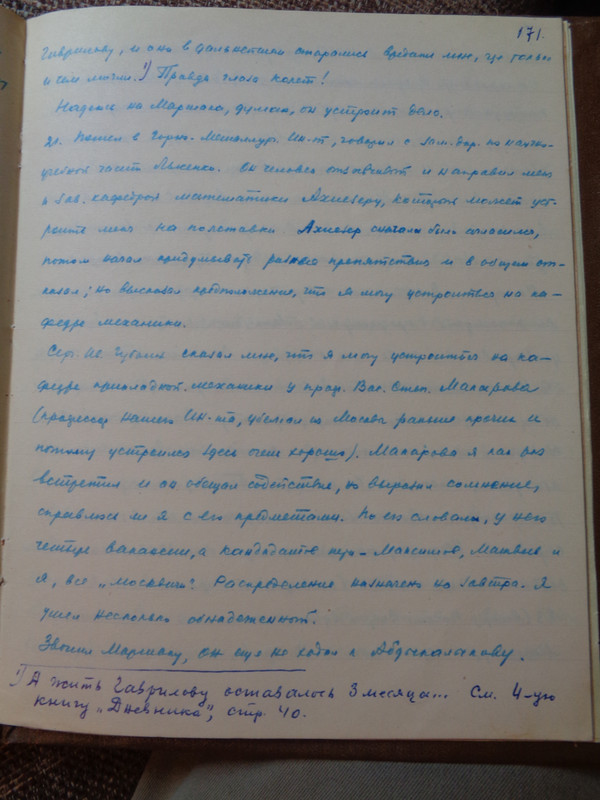 171.
Гаврилову, и они в дальнейшем старались вредить мне, где только
и чем могли.¹) Правда глаза колет!
Надеюсь на Маршака, думаю, он устроит дело.
21. Пошел в Горно-Металлург. Ин-т, говорил с зам. дир. по научно-
учебной части Лысенко. Он человек отзывчивый и направил меня
к зав. кафедрой математики Ахиезеру, который может уст-
роить меня на полставки. Ахиезер сначала было согласился,
потом начал придумывать разные препятствия и в общем от-
казал; но высказал предположение, что я могу устроиться на ка-
федре механики.
Серг. Ив. Губкин сказал мне, что я могу устроиться на ка-
федре прикладной механики у проф. Вас. Степ. Макарова
(профессор нашего Ин-та, убежал из Москвы раньше прочих и
потому устроился здесь очень хорошо). Макарова я как раз
встретил и он обещал содействие, но выразил сомнение,
справлюсь ли я с его предметами. По его словам, у него
четыре вакансии, а кандидатов три – Максимов, Матвеев и
я, все „москвичи“. Распределение назначено на завтра. Я
ушел несколько обнадеженный.
Звонил Маршаку, он еще не ходил к Абдыкалыкову.
¹) А жить Гаврилову оставалось 3 месяца... См. 4-ую
книгу „Дневника“, стр. 40.